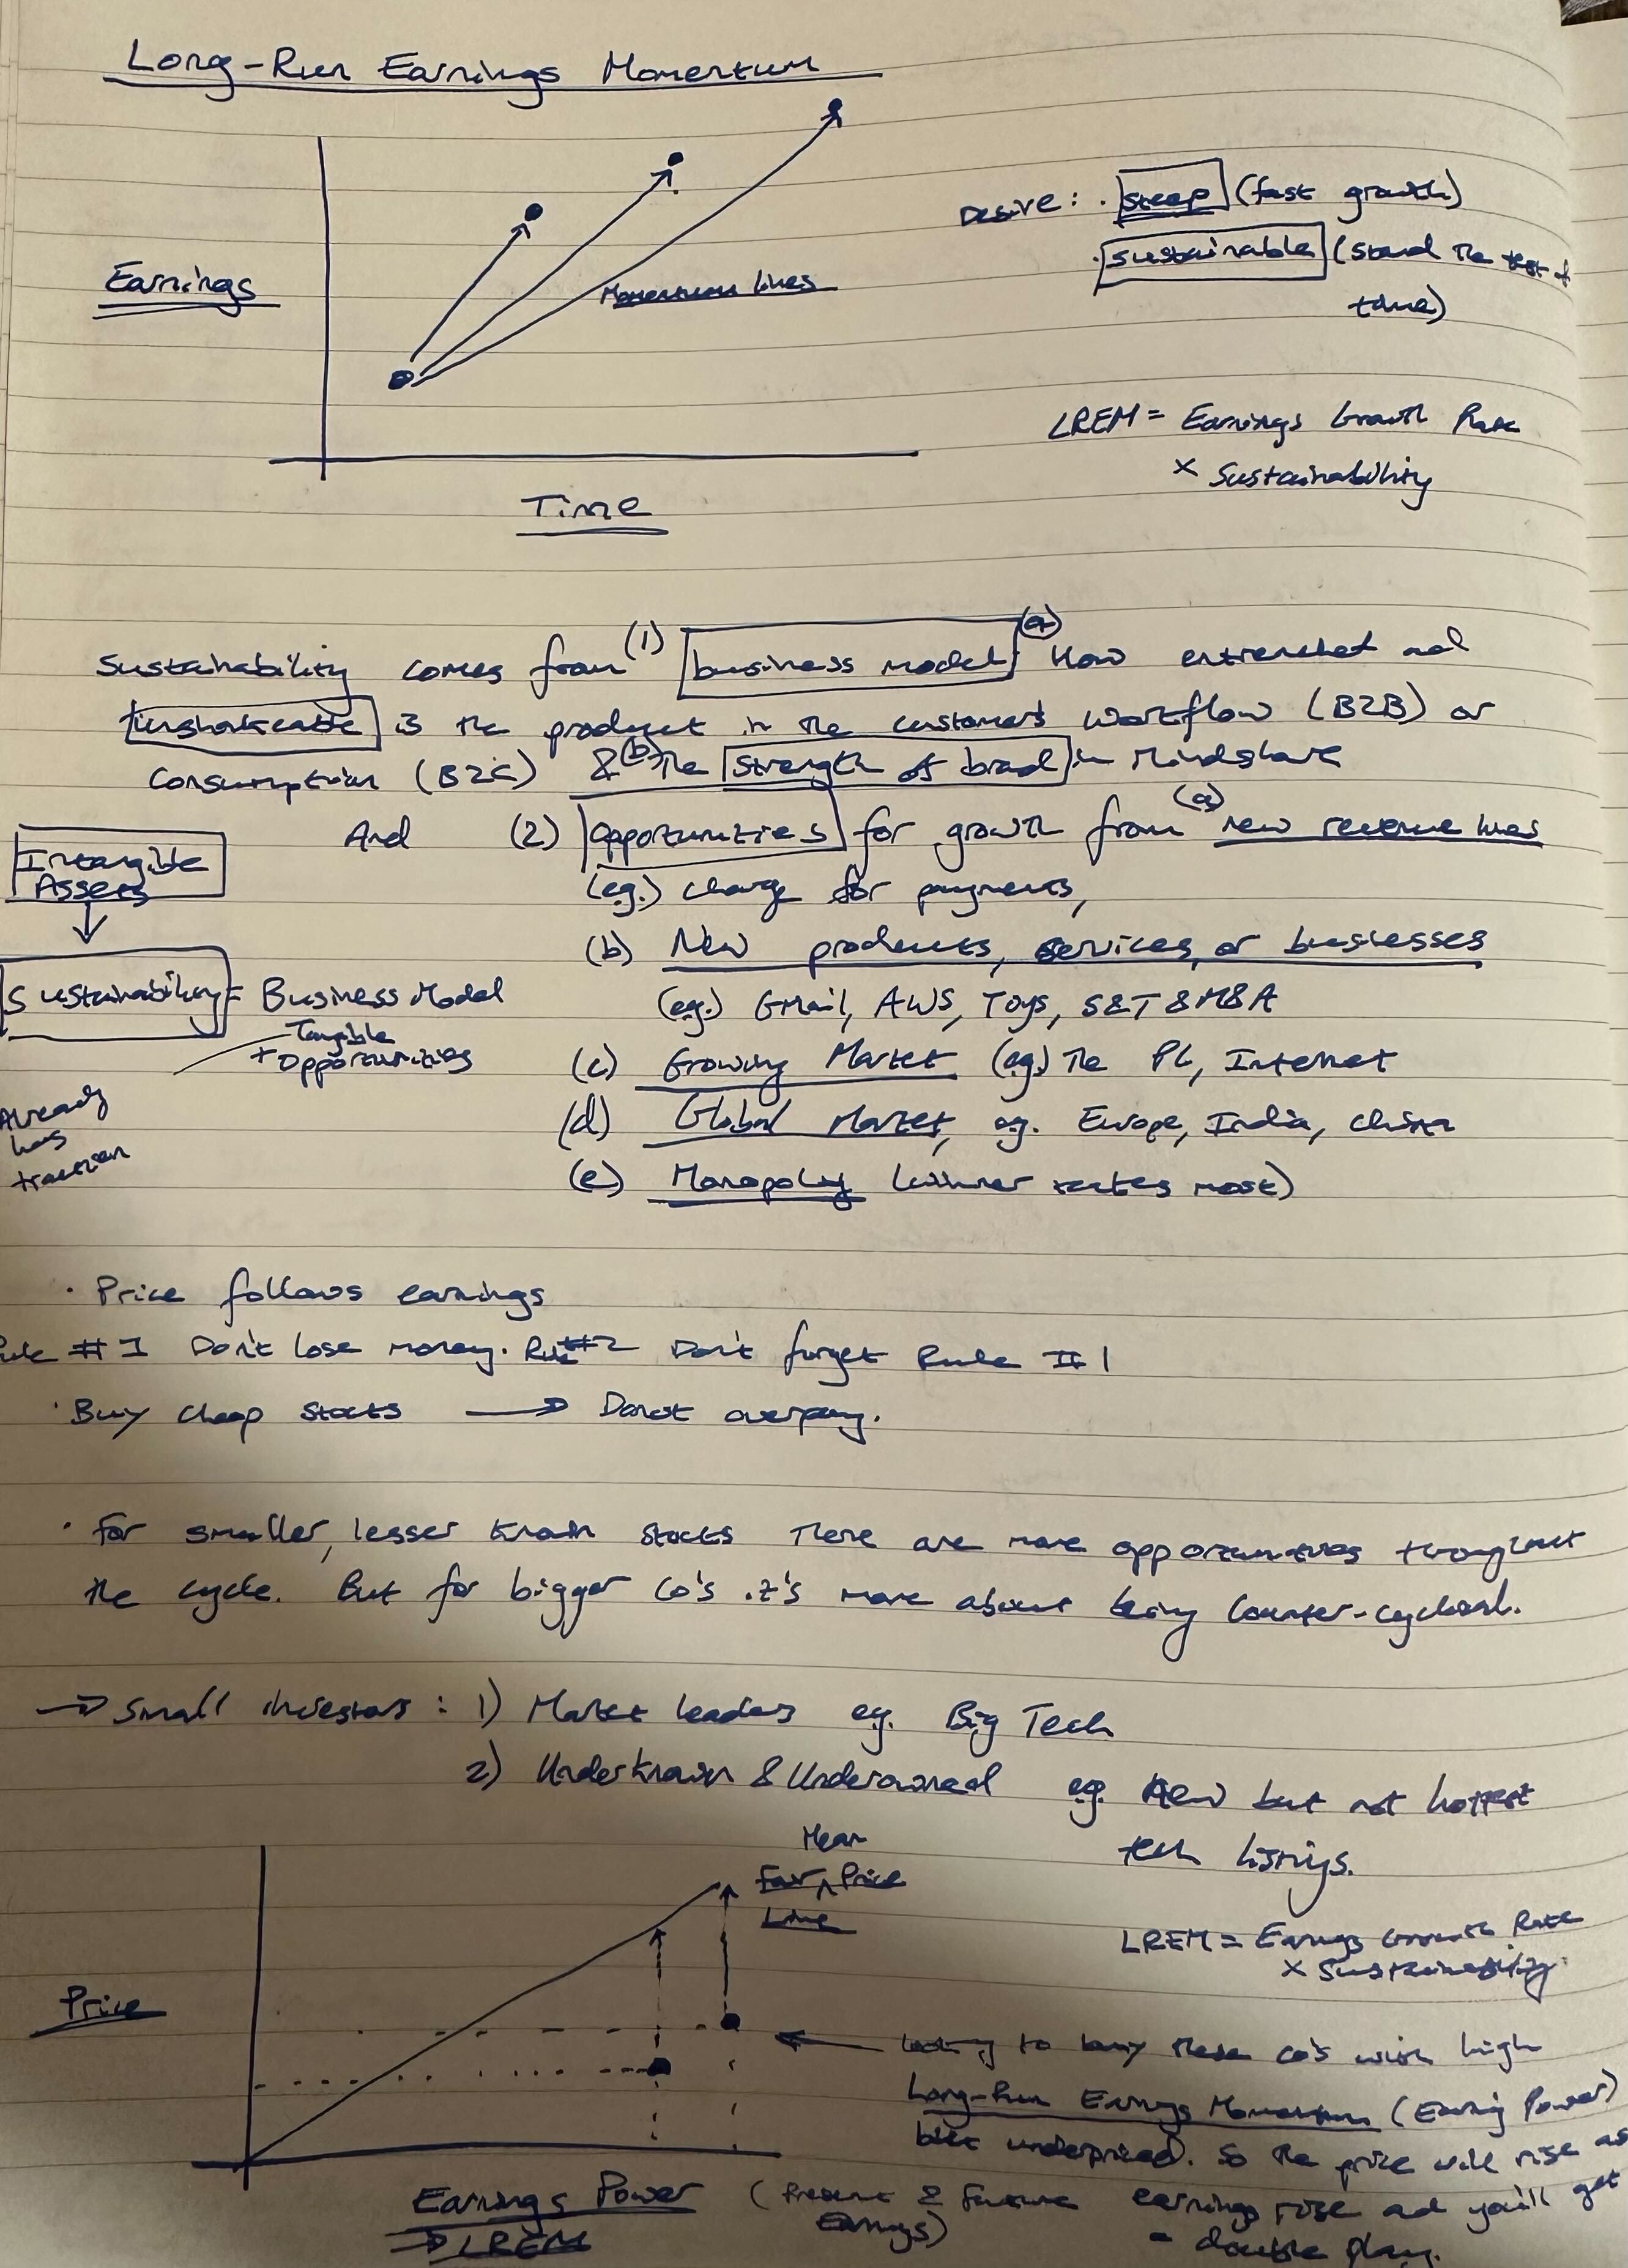 Long-Run Earnings Momentum
Desire: . steep (fast growth)
Earnings
Momentum lines
. sustainable (stand the test of
time)
LREM = Earnings Growth Rate
x Sustainability
Time
Sustainability comes from (1) business model (a) How entrenched and
unshakeable is the product in the customers workflow (B2B) or
consumption (B2C) & (b) The strength of brand in Mindshare
And (2) opportunities for growth from (a) new revenue lines
(eg.) charge for payments,
Intangible
Assets
(b) New products, services, or businesses
Sustainability = Business Model
(eg.) GMail, AWS, Toys, S&T & M&A
Tangible
+ Opportunities
(c) Growing Market (eg.) The PC, Internet
Already
has
traction
(d) Global Market, eg. Europe, India, China
(e) Monopoly (winner takes most)
· Price follows earnings
Rule #1 Don't lose money. Rule #2 Don't forget Rule #1
· Buy cheap stocks → Do not overpay.
· For smaller, lesser known stocks there are more opportunities throughout
the cycle. But for bigger co's it's more about being counter-cyclical.
→ Small investors: 1) Market leaders eg. Big Tech
2) Underknown & Underowned eg. New but not hottest
tech listings.
Mean
Fair ^ Price
Line
LREM = Earnings Growth Rate
x Sustainability
Price
← looking to buy these co's with high
Long-Run Earnings Momentum (Earning Power)
but underpriced. So the price will rise as
earnings rise and you'll get
a double play.
Earnings Power (Present & Future
Earnings)
→ LREM